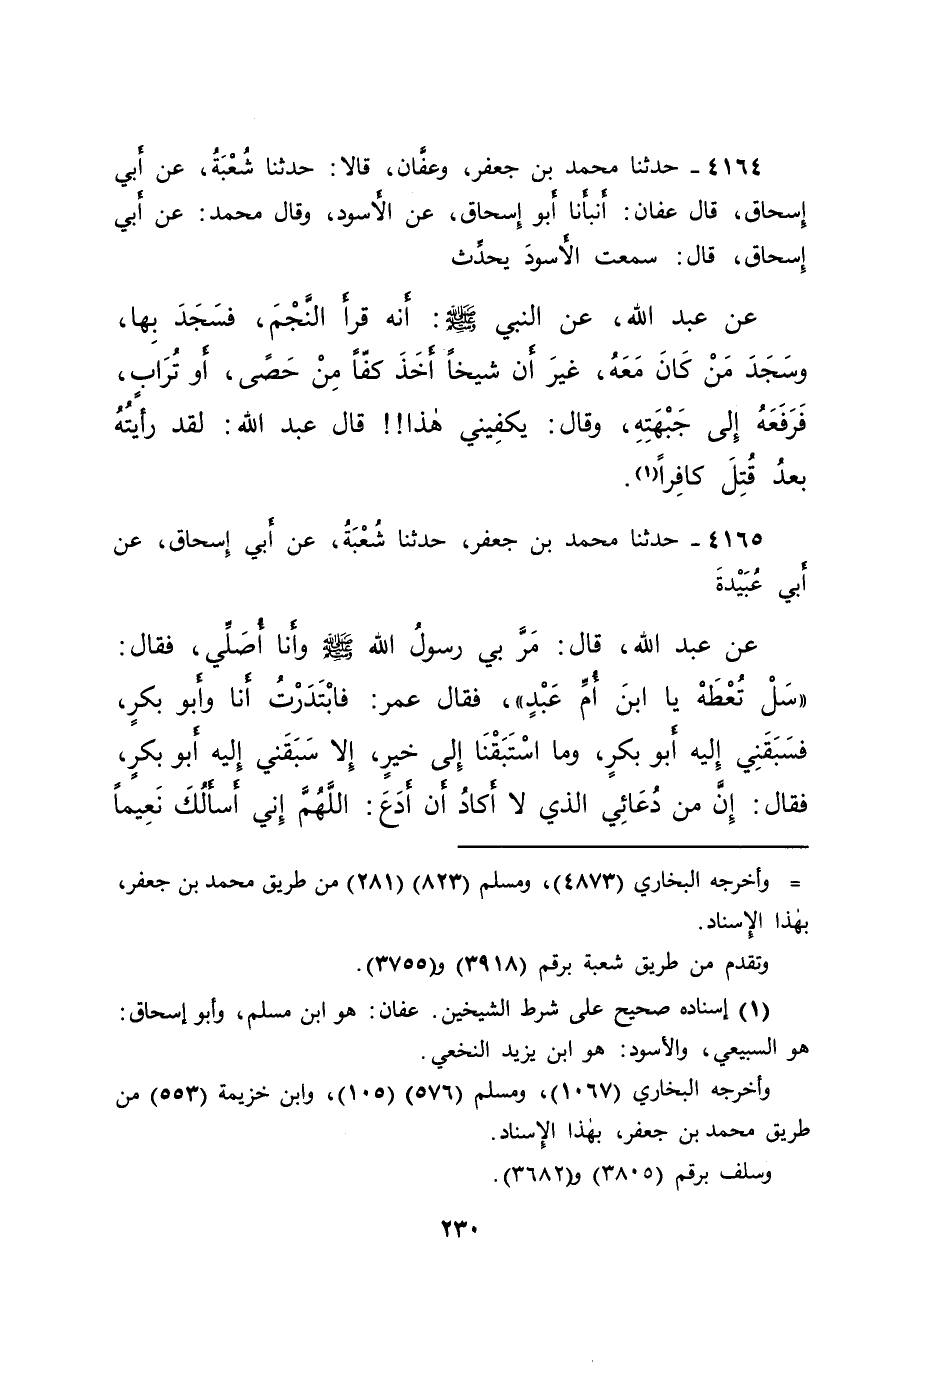 ٤١٦٤ ـ حدثنا محمد بن جعفر، وعفَّان، قالا: حدثنا شُعْبَةُ، عن أَبي
إسحاق، قال عفان: أَنبأَنا أَبو إسحاق، عن الأَسود، وقال محمد: عن أَبي
إسحاق، قال: سمعت الأَسودَ يحدِّث
عن عبد الله، عن النبي ﷺ: أَنه قرأَ النَّجْمَ، فسَجَدَ بِها،
وسَجَدَ مَنْ كَانَ مَعَهُ، غيرَ أَن شيخاً أَخَذَ كفّاً مِنْ حَصًى، أَو تُرَابٍ،
فَرَفَعَهُ إِلى جَبْهَتِهِ، وقال: يكفِيني هٰذا!! قال عبد الله: لقد رأَيتُهُ
بعدُ قُتِلَ كافِراً(١).
٤١٦٥ ـ حدثنا محمد بن جعفر، حدثنا شُعْبَةُ، عن أَبي إسحاق، عن
أَبي عُبَيْدةَ
عن عبد الله، قال: مَرَّ بي رسولُ الله ﷺ وأَنا أُصَلِّي، فقال:
«سَلْ تُعْطَهْ يا ابنَ أُمِّ عَبْدٍ»، فقال عمر: فابْتَدَرْتُ أَنا وأَبو بكرٍ،
فسَبَقَنِي إليه أَبو بكرٍ، وما اسْتَبَقْنَا إلى خيرٍ، إلا سَبَقَني إليه أَبو بكرٍ،
فقال: إنَّ من دُعَائِي الذي لا أَكادُ أَن أَدَعَ: اللَّهُمَّ إني أَسأَلُكَ نَعِيماً
= وأخرجه البخاري (٤٨٧٣)، ومسلم (٨٢٣) (٢٨١) من طريق محمد بن جعفر،
بهٰذا الإسناد.
وتقدم من طريق شعبة برقم (٣٩١٨) و(٣٧٥٥).
(١) إسناده صحيح على شرط الشيخين. عفان: هو ابن مسلم، وأبو إسحاق:
هو السبيعي، والأسود: هو ابن يزيد النخعي.
وأخرجه البخاري (١٠٦٧)، ومسلم (٥٧٦) (١٠٥)، وابن خزيمة (٥٥٣) من
طريق محمد بن جعفر، بهٰذا الإسناد.
وسلف برقم (٣٨٠٥) و(٣٦٨٢).
٢٣٠